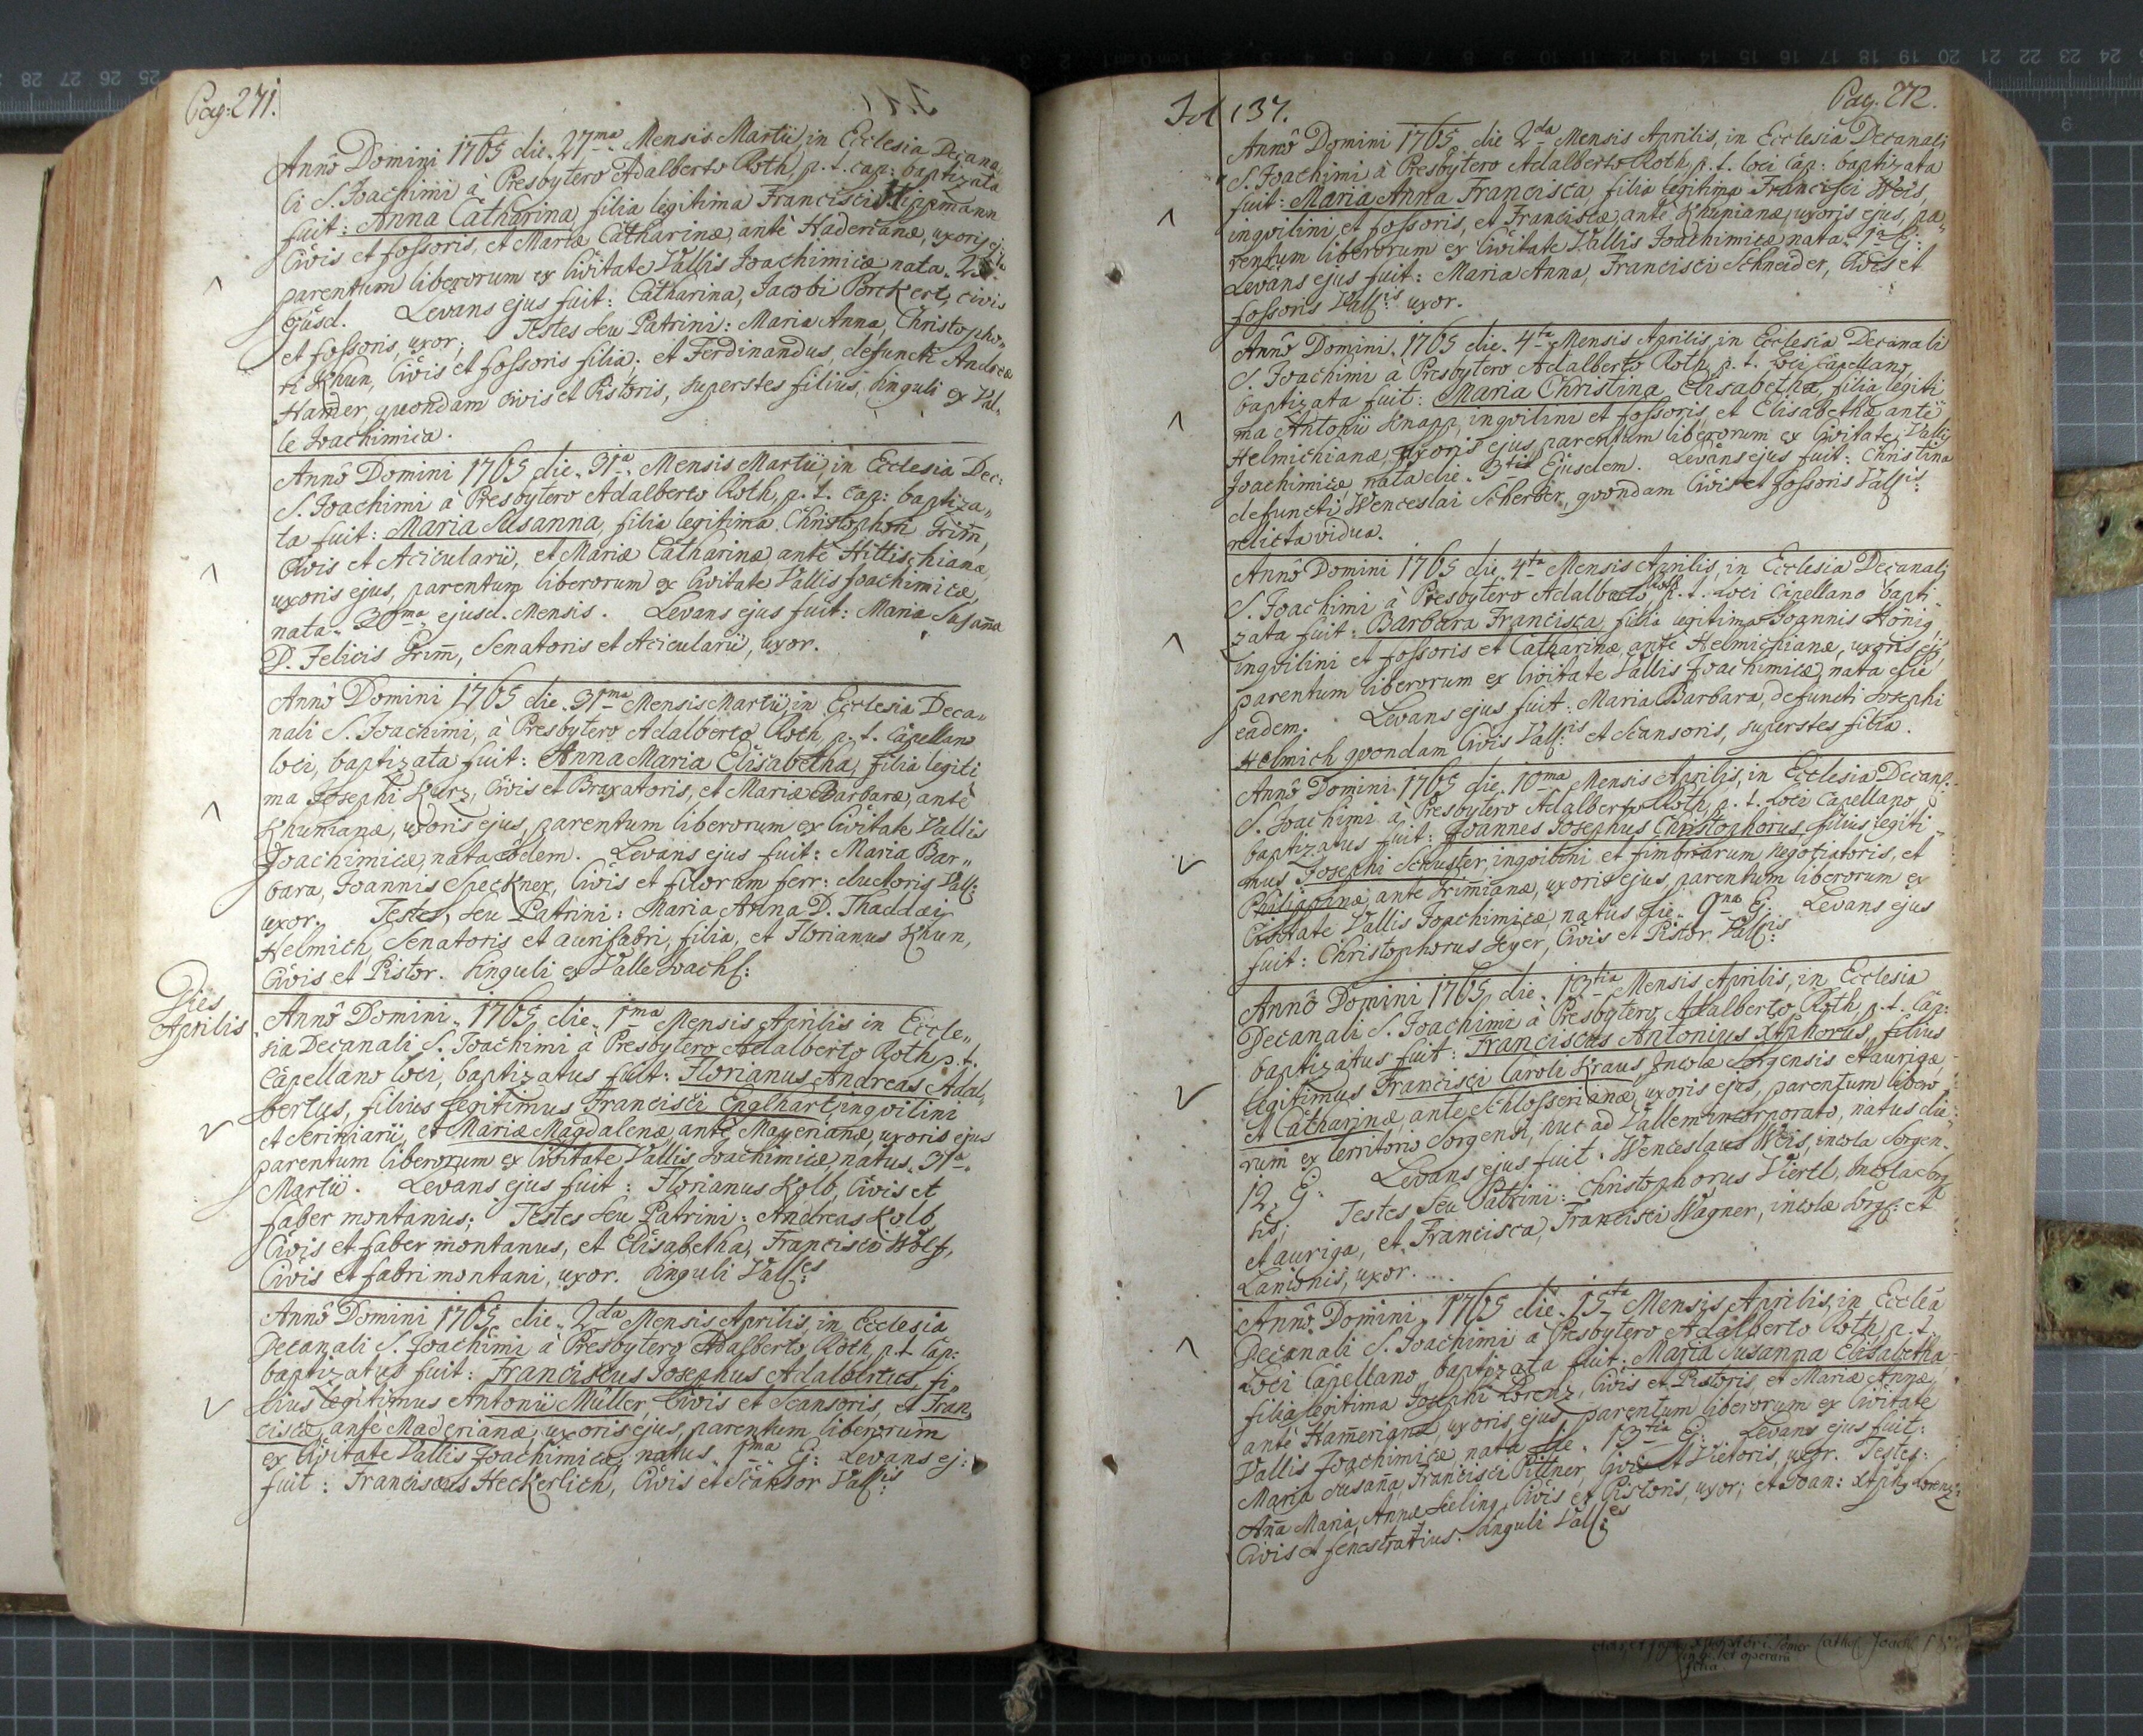 Pag: 271.
Annô Domini 1765 die 27ma Mensis Martii, in Ecclesia Decana„
li S. Joachimi à Presbytero Adalberto Roth, p. t. cap: baptizata
fuit: Anna Catharina, filia legitima Francisci
Civis et fossoris, et Mariæ Catharinæ, antè Haderianæ, uxoris ej:
parentum liberorum ex Civitate Vallis Joachimicæ nata
Ejusd. Levans ejus fuit: Catharina, Jacobi Porckert, civis
et fossoris, uxor; Testes seu Patrini: Maria Anna, Christopho„
ri Khun, Civis et fossoris filia; et Ferdinandus, defuncti Andreæ
Hander, quondam civis et Pistoris, superstes filius, singuli ex Val„
le Joachimica.
Annô Domini 1765 die 31a Mensis Martii, in Ecclesia Dec:
S. Joachimi à Presbytero Adalberto Roth, p. t. cap: baptiza„
ta fuit: Maria Susanna, filia legitima Christophori Grim̄,
Civis et Acicularii, et Mariæ Catharinæ antè Hittischianæ,
uxoris ejus, parentum liberorum ex Civitate Vallis Joachimicæ,
nata 30ma ejusd. Mensis. Levans ejus fuit: Maria Susan̄a
D. Felicis Grim̄, Senatoris et Acicularii, uxor.
Annô Domini 1765 die 31ma Mensis Martii, in Ecclesia Deca„
nali S. Joachimi, à Presbytero Adalberto Roth, p. t. Capellano
loci, baptizata fuit: Anna Maria Elisabetha, filia legiti
ma Josephi Kurz, Civis et Braxatoris, et Mariæ Barbaræ, antè
Khunianæ, uxoris ejus, parentum liberorum ex Civitate Vallis
Joachimicæ, nata eodem. Levans ejus fuit: Maria Bar„
bara, Joannis Speckner, Civis et filorum ferr: ductoris Vall:
uxor. Testes, seu Patrini: Maria Anna D. Thaddæi
Helmich, Senatoris et aurifabri, filia, et Florianus Khun,
Civis et Pistor. singuli ex Valle Joachi:
Dies
Aprilis
Annô Domini 1765 die 1ma Mensis Aprilis in Eccle„
sia Decanali S. Joachimi à Presbytero Adalberto Roth, p. t.
Capellano loci, baptizatus fuit: Florianus Andreas Adal„
bertus, filius legitimus Francisci Englhart, inqvilini
et scriniarii, et Mariæ Magdalenæ, antè Mayerianæ, uxoris ejus
parentum liberorum ex Civitate Vallis Joachimicæ, natus 31a
Martii. Levans ejus fuit: Florianus Kolb, Civis et
faber montanus; Testes seu Patrini: Andreas Kolb,
Civis et faber montanus, et Elisabetha, Francisci Wolf,
Civis et fabri montani, uxor. singuli Vallses
Annô Domini 1765 die 2da Mensis Aprilis, in Ecclesia
Decanali S. Joachimi à Presbytero Adalberto Roth, p. t. Cap:
baptizatus fuit: Franciscus Josephus Adalbertus, fi„
lius legitimus Antonii Müller, Civis et Scansoris, et Fran„
ciscæ, antè Maderianæ, uxoris ejus, parentum liberorum
ex Civitate Vallis Joachimicæ, natus 1ma Ej: Levans ej:
fuit: Franciscus Heckerlich, Civis et Scansor Vallsis
Fol 137.
Pag. 272.
Annô Domini 1765 die 2da Mensis Aprilis, in Ecclesia Decanali
S. Joachimi à Presbytero Adalberto Roth, p. t. loci Cap: baptizata
fuit: Maria Anna Francisca, filia legitima Francisci Weis,
inqvilini et fossoris, et Franciscæ, antè Khunianæ, uxoris ejus, pa„
rentum liberorum ex Civitate Vallis Joachimicæ, nata 1a Ej:
Levans ejus fuit: Maria Anna, Francisci Schneider, Civis et
fossoris Vallsis uxor.
Annô Domini 1765 die 4ta Mensis Aprilis, in Ecclesia Decanali
S. Joachimi à Presbytero Adalberto Roth, p. t. loci Capellano,
baptizata fuit: Maria Christina Elisabetha, filia legiti
ma Antonii Knapp, inqvilini et fossoris, et Elisabethæ antè
Helmichianæ, uxoris ejus, parentum liberorum ex Civitate Vallis
Joachimicæ nata die 3tia Ejusdem. Levans ejus fuit: Christina
defuncti Wenceslai Scherber, qvondam Civis et fossoris Vallsis
relicta vidua.
Annô Domini 1765 die 4ta Mensis Aprilis, in Ecclesia Decanali
S. Joachimi à Presbytero Adalberto Roth p. t. loci Capellano bapti
zata fuit: Barbara Francisca, filia legitima Joannis König,
inqvilini et fossoris et Catharinæ, antè Helmichianæ, uxoris ej:
parentum liberorum ex Civitate Vallis Joachimicæ, nata die
eadem. Levans ejus fuit: Maria Barbara, defuncti Josephi
Helmich qvondam Civis Vallsis et Scansoris, superstes filia.
Annô Domini 1765 die 10ma Mensis Aprilis, in Ecclesia Decanl:
S. Joachimi à Presbytero Adalberto Roth, p. t. loci Capellano
baptizatus fuit: Joannes Josephus Christophorus, filius legiti„
mus Josephi Schuster, inqvilini et fimbriarum negotiatoris, et
Philippinæ, antè Grimianæ, uxoris ejus, parentum liberorum ex
Civitate Vallis Joachimicæ, natus die 9na Ej: Levans ejus
fuit: Christophorus Heyer, Civis et Pistor Vallsis
Annô Domini 1765 die 13tia Mensis Aprilis, in Ecclesia
Decanali S. Joachimi à Presbytero Adalberto Roth, p. t. Cap:
baptizatus fuit: Franciscus Antonius Xstphorus, filius
legitimus Francisci Caroli Kraus, Incolæ Sorgensis et aurigæ,
et Catharinæ, antè Schlosserianæ, uxoris ejus, parentum libero„
rum ex territorio Sorgensi, huc ad Vallem incorporato, natus die
12 Ej: Levans ejus fuit: Wenceslaus Weis, incola Sorgen„
sis; Testes seu Patrini: Christophorus Viertl, Incola Sorg:
et auriga, et Francisca, Francisci Wagner, incolæ Sorg: et
Lanionis, uxor.
Annô Domini 1765 die 15ta Mensis Aprilis, in Eccleâ
Decanali S. Joachimi à Presbytero Adalberto Roth, p. t.
loci Capellano, baptizata fuit: Maria Susanna Elisabetha
filia legitima Josephi Lorenz, Civis et Pistoris, et Mariæ Annæ,
antè Ham̄erianæ uxoris ejus, parentum liberorum ex Civitate
Vallis Joachimicæ nata die 13tia Ej: Levans ejus fuit:
Maria Susan̄a, Francisci Pittner, Civis et Vietoris, uxor. Testes:
An̄a Maria, Seeling, Civis et Pistoris, uxor; et Joan: Xstph Lorenz:
Civis et fenestrarius. singuli Vallses